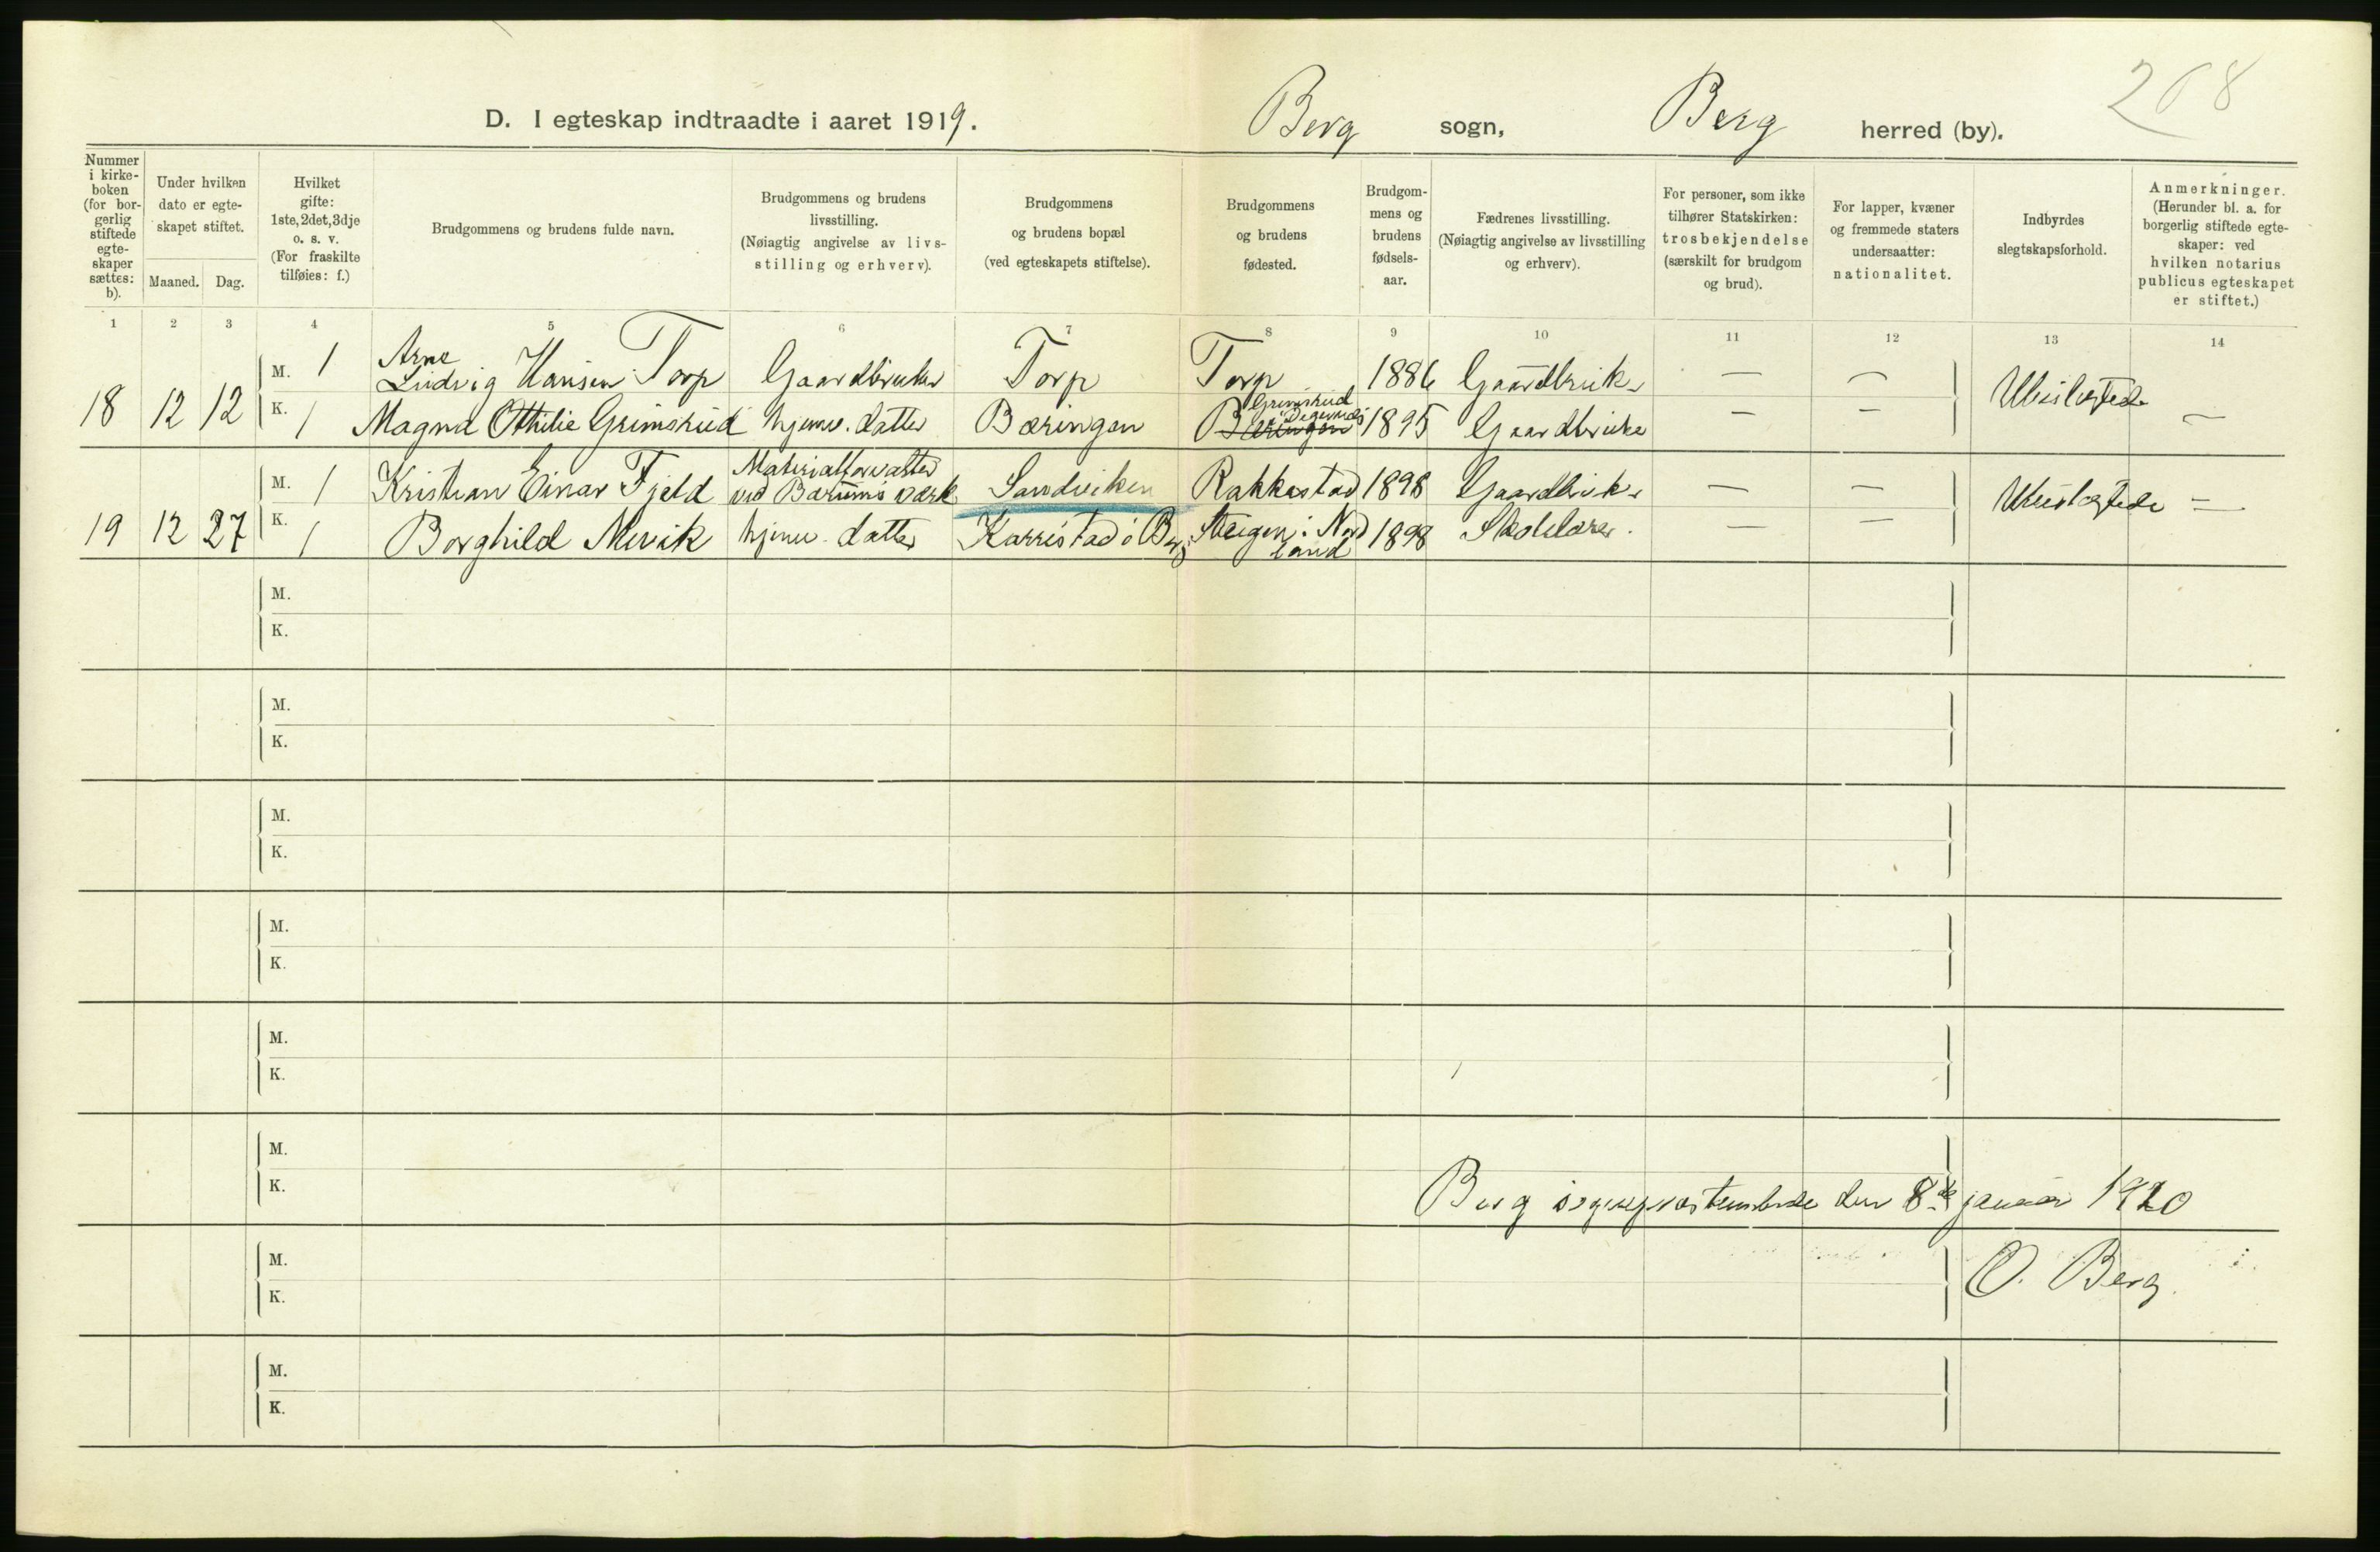 268
D. I egteskap indtraadte i aaret 1919. Berg sogn, Berg herred (by).
Nummer i kirke-boken (for bor-gerlig stiftede egte-skaper sættes: b).
Under hvilken dato er egte-skapet stiftet.
Maaned. Dag.
Hvilket gifte: 1ste, 2det, 3dje o. s. v. (For fraskilte tilføies: f.)
Brudgommens og brudens fulde navn.
Brudgommens og brudens livsstilling. (Nøiagtig angivelse av livs-stilling og erhverv).
Brudgommens og brudens bopæl (ved egteskapets stiftelse).
Brudgommens og brudens fødested.
Brudgom-mens og brudens fødsels-aar.
Fædrenes livsstilling. (Nøiagtig angivelse av livsstilling og erhverv).
For personer, som ikke tilhører Statskirken: trosbekjendelse (særskilt for brudgom og brud).
For lapper, kvæner og fremmede staters undersaatter: nationalitet.
Indbyrdes slegtskapsforhold.
Anmerkninger. (Herunder bl. a. for borgerlig stiftede egte-skaper: ved hvilken notarius publicus egteskapet er stiftet.)
1 2 3 4 5 6 7 8 9 10 11 12 13 14
M. 1 Arne Ludvig Hansen Torp Gaardbruker Torp Torp 1886 Gaardbruk. — — Ubeslegtede
18 12 12 K. 1 Magna Othilie Grimsrud hjemv. datter Bæringen Bæringen Grimsrud i 1895 Gaardbruker — — —
M. 1 Kristian Einar Fjeld Materialforvalter ved Bærums værk Sandviken Rakkestad 1898 Gaardbruk. — — Ubeslegtede —
19 12 27 K. 1 Borghild Mevik hjemv. datter Karristad i Berg Steigen i Nordland 1898 Skolelærer. — —
M.
K.
M.
K.
M.
K.
M.
K.
M.
K.
M.
K. Berg sogneprestembede den 8de januar 1920
M. O. Berg.
K.
M.
K.